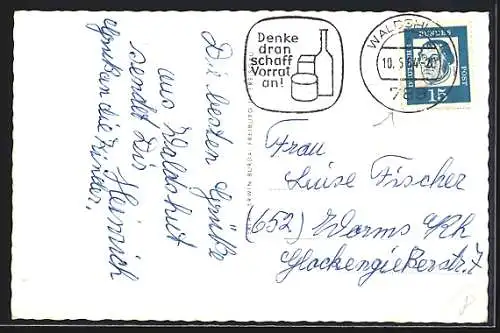 Die besten Grüße
aus Waldshut
sendet Dir
Heinrich
die Kinder.
Denke
dran
schaff
Vorrat
an!
WALDSHUT
10. 5. 64.-20
789
DEUTSCHE
BUNDES
POST
15
ERWIN BURDA FREIBURG
Frau
Luise Fischer
(652) Worms Rh
Glockengießerstr. 7